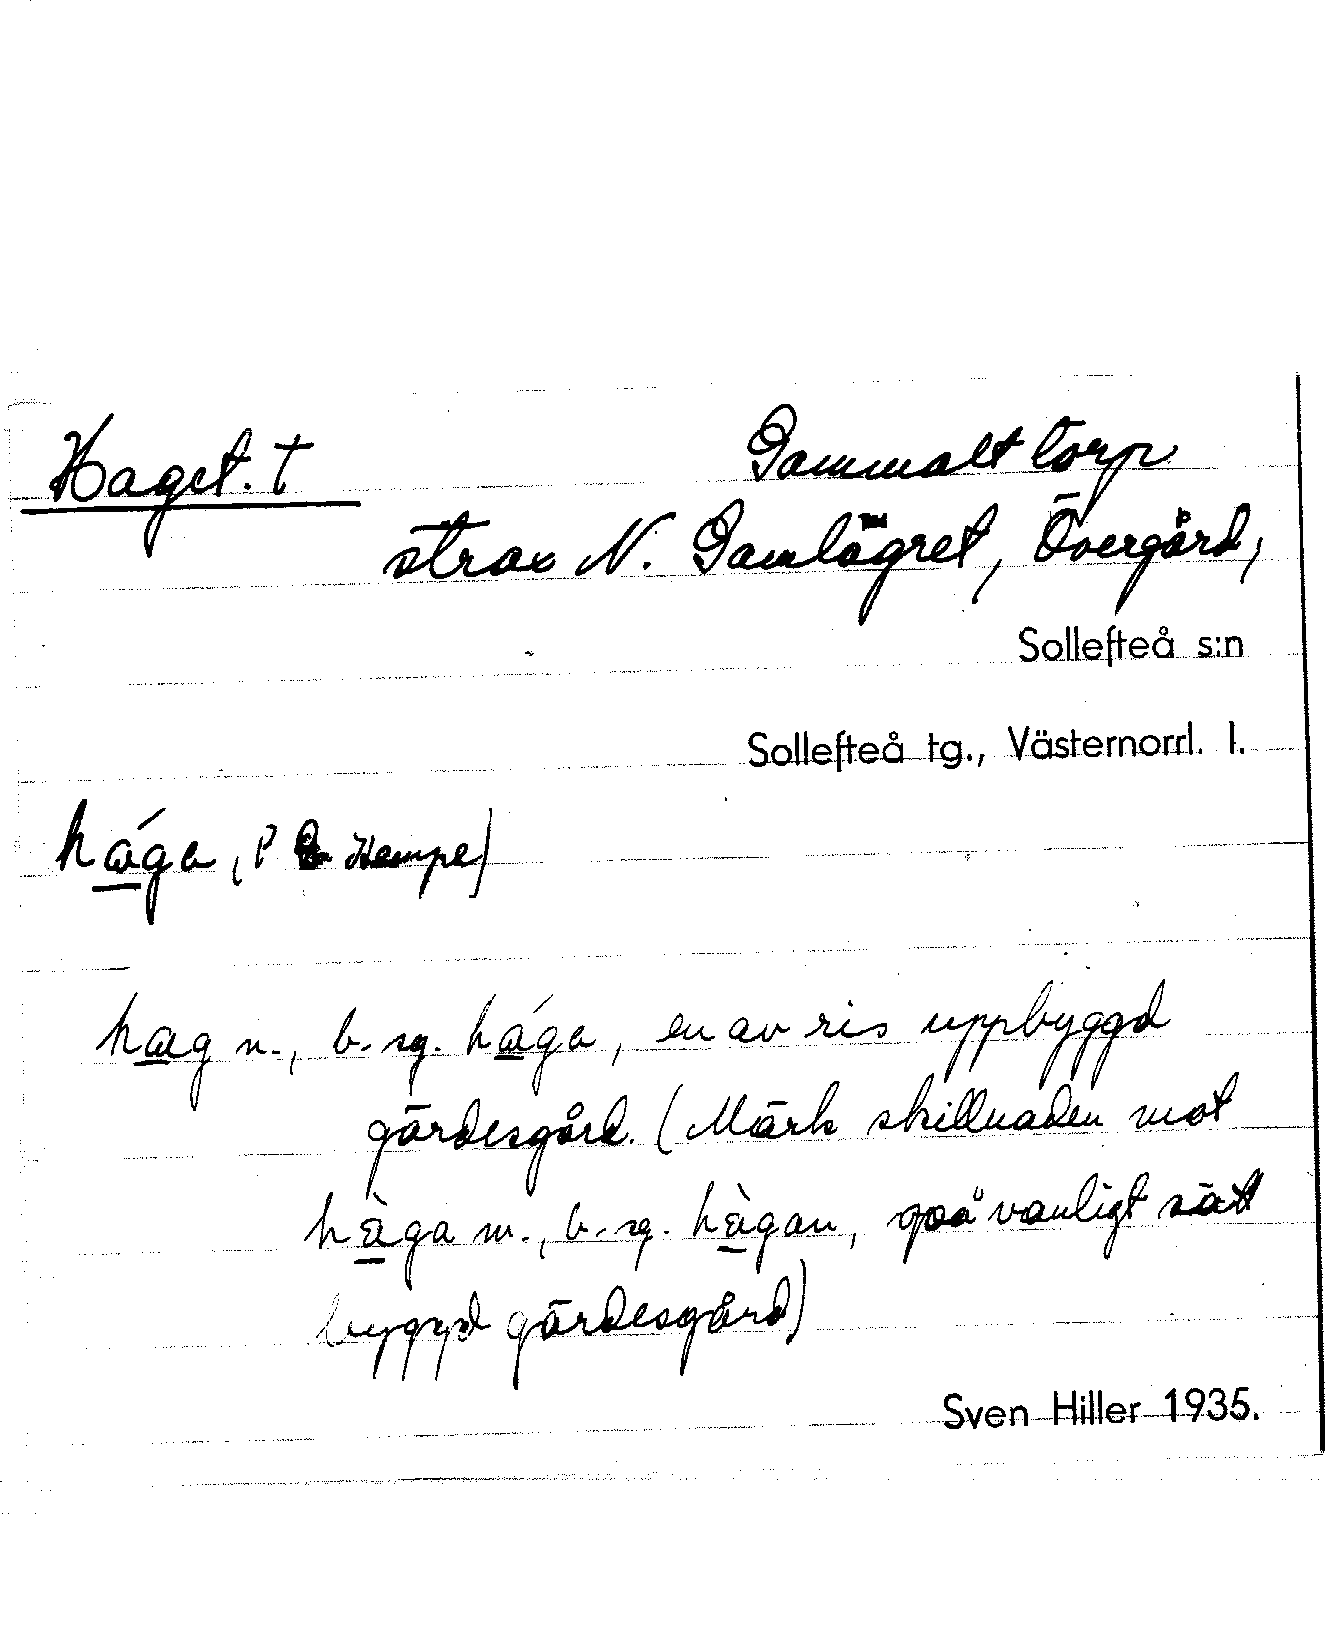 Haget. † Gammalt torp
strax N. Gamlägret, Övergård,
Sollefteå s:n
Sollefteå tg., Västernorrl. l.
há̱ga, (P Hampe)
ha̱g n., b. sg. há̱ga, en av ris uppbyggd
gärdesgård. (Märk skillnaden mot
hà̱ga m., b. sg. hà̱gan, på vanligt sätt
byggd gärdesgård)
Sven Hiller 1935.